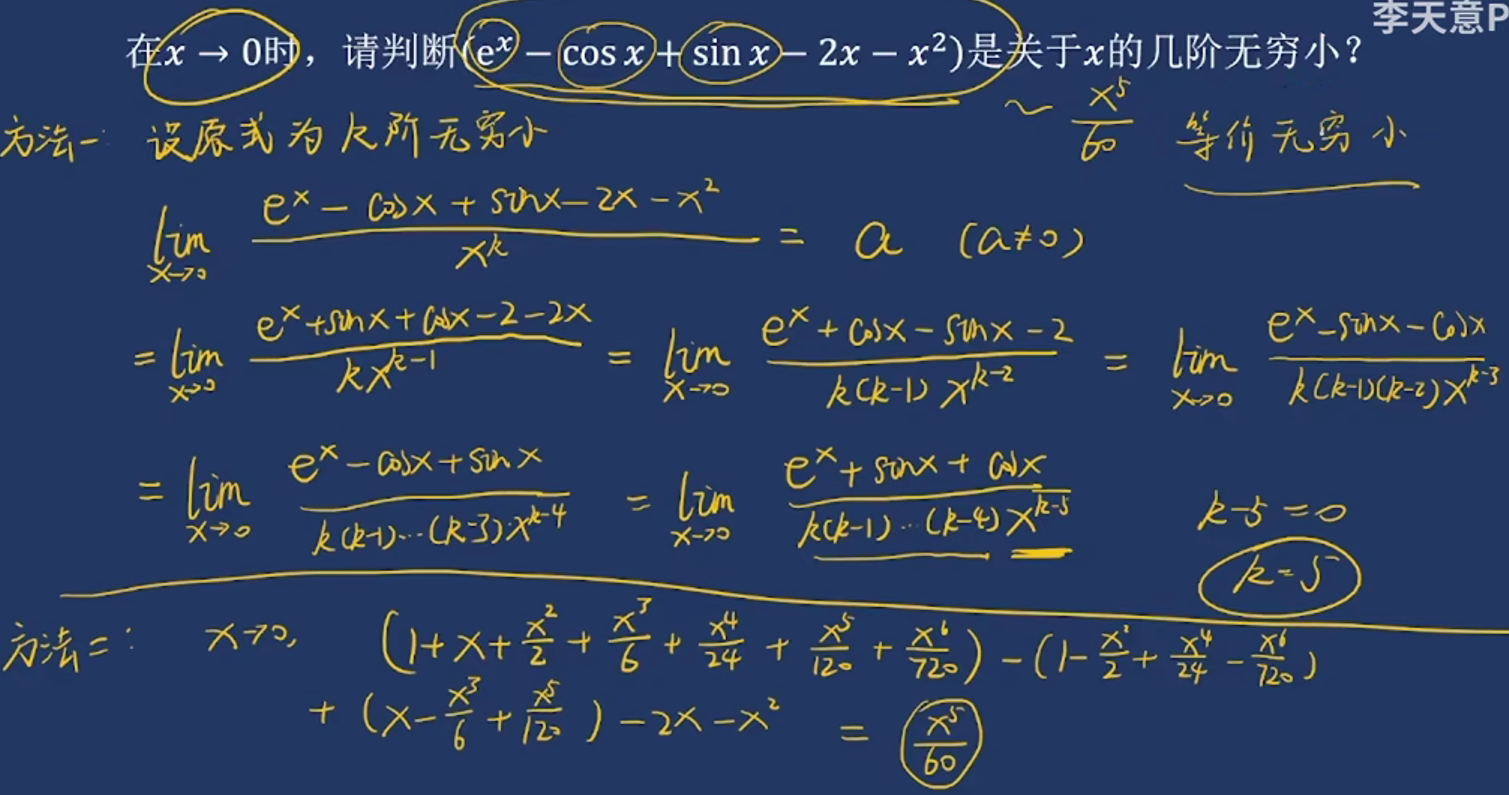 李天意P
在x → 0时，请判断(eˣ − cos x + sin x − 2x − x²)是关于x的几阶无穷小？
~ x⁵/60 等价无穷小
方法一: 设原式为k阶无穷小
lim x→0 (eˣ − cosx + sinx − 2x − x²)/xᵏ = a (a≠0)
= lim x→0 (eˣ + sinx + cosx − 2 − 2x)/(kxᵏ⁻¹) = lim x→0 (eˣ + cosx − sinx − 2)/(k(k−1)xᵏ⁻²) = lim x→0 (eˣ − sinx − cosx)/(k(k−1)(k−2)xᵏ⁻³)
= lim x→0 (eˣ − cosx + sinx)/(k(k−1)···(k−3)·xᵏ⁻⁴) = lim x→0 (eˣ + sinx + cosx)/(k(k−1)···(k−4)xᵏ⁻⁵) k−5=0
k=5
方法二: x→0, (1+x+x²/2+x³/6+x⁴/24+x⁵/120+x⁶/720)−(1−x²/2+x⁴/24−x⁶/720)
+(x−x³/6+x⁵/120)−2x−x² = x⁵/60